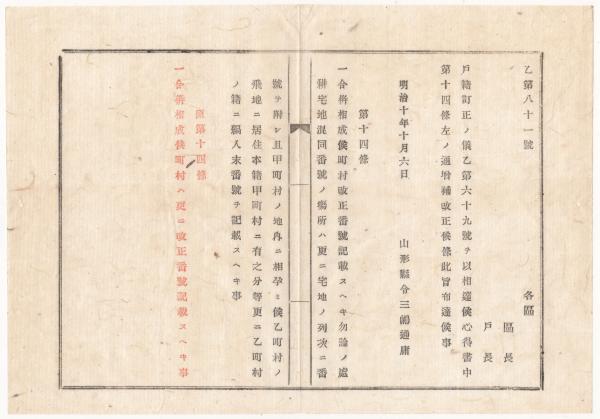 乙第八十一號
各區
區長
戸長
戸籍訂正ノ儀乙第六十九號ヲ以相達候心得書中
第十四條左ノ通增補改正候條此旨布達候事
明治十年十月六日
山形縣令三島通庸
第十四條
一合併相成候町村改正番號記載スヘキ勿論ノ處
耕宅地混同番號ノ場所ハ更ニ宅地ノ列次ニ番
號ヲ附シ且甲町村ノ地內ニ相孕ミ候乙町村ノ
飛地ニ居住本籍甲町村ニ有之分等更ニ乙町村
ノ籍ニ編入末番號ヲ記載スヘキ事
第十四條
一合併相成候町村ハ更ニ改正番號記載スヘキ事